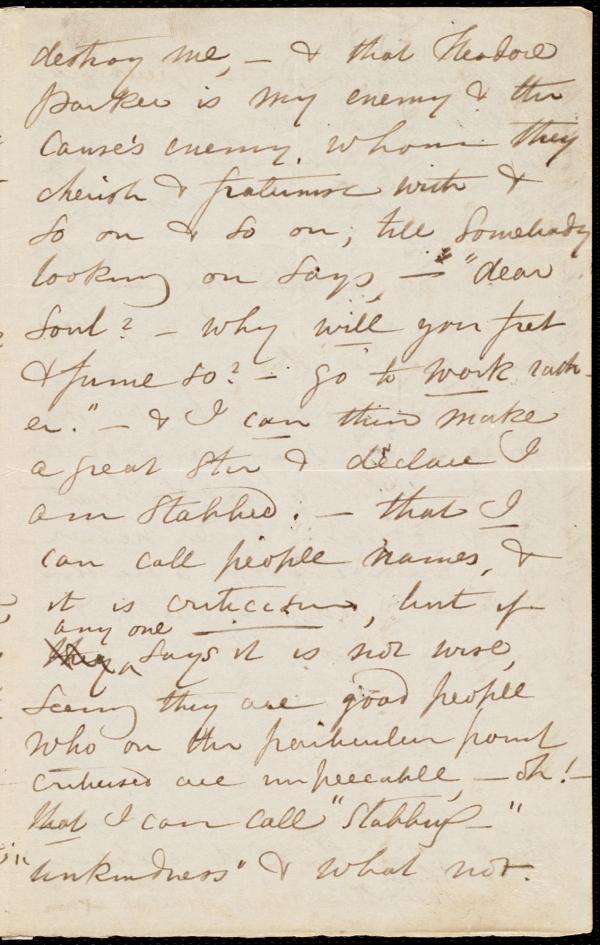 destroy me, — & that Theodore
Parker is my enemy & the
Cause's enemy, whom they
cherish & fraternise with &
so on & so on; till somebody
looking on says, — "dear
soul? — why will you fret
& fume so? — go to work rath-
er." — & I can then make
a great stir & declare I
am stabbed. — that I
can call people names, &
it is criticism, but if
any one
says it is not wise,
seeing they are good people
who on the particular point
criticised are unpeccable, — oh! —
that I can call "stabbing —"
"unkindness" & what not.